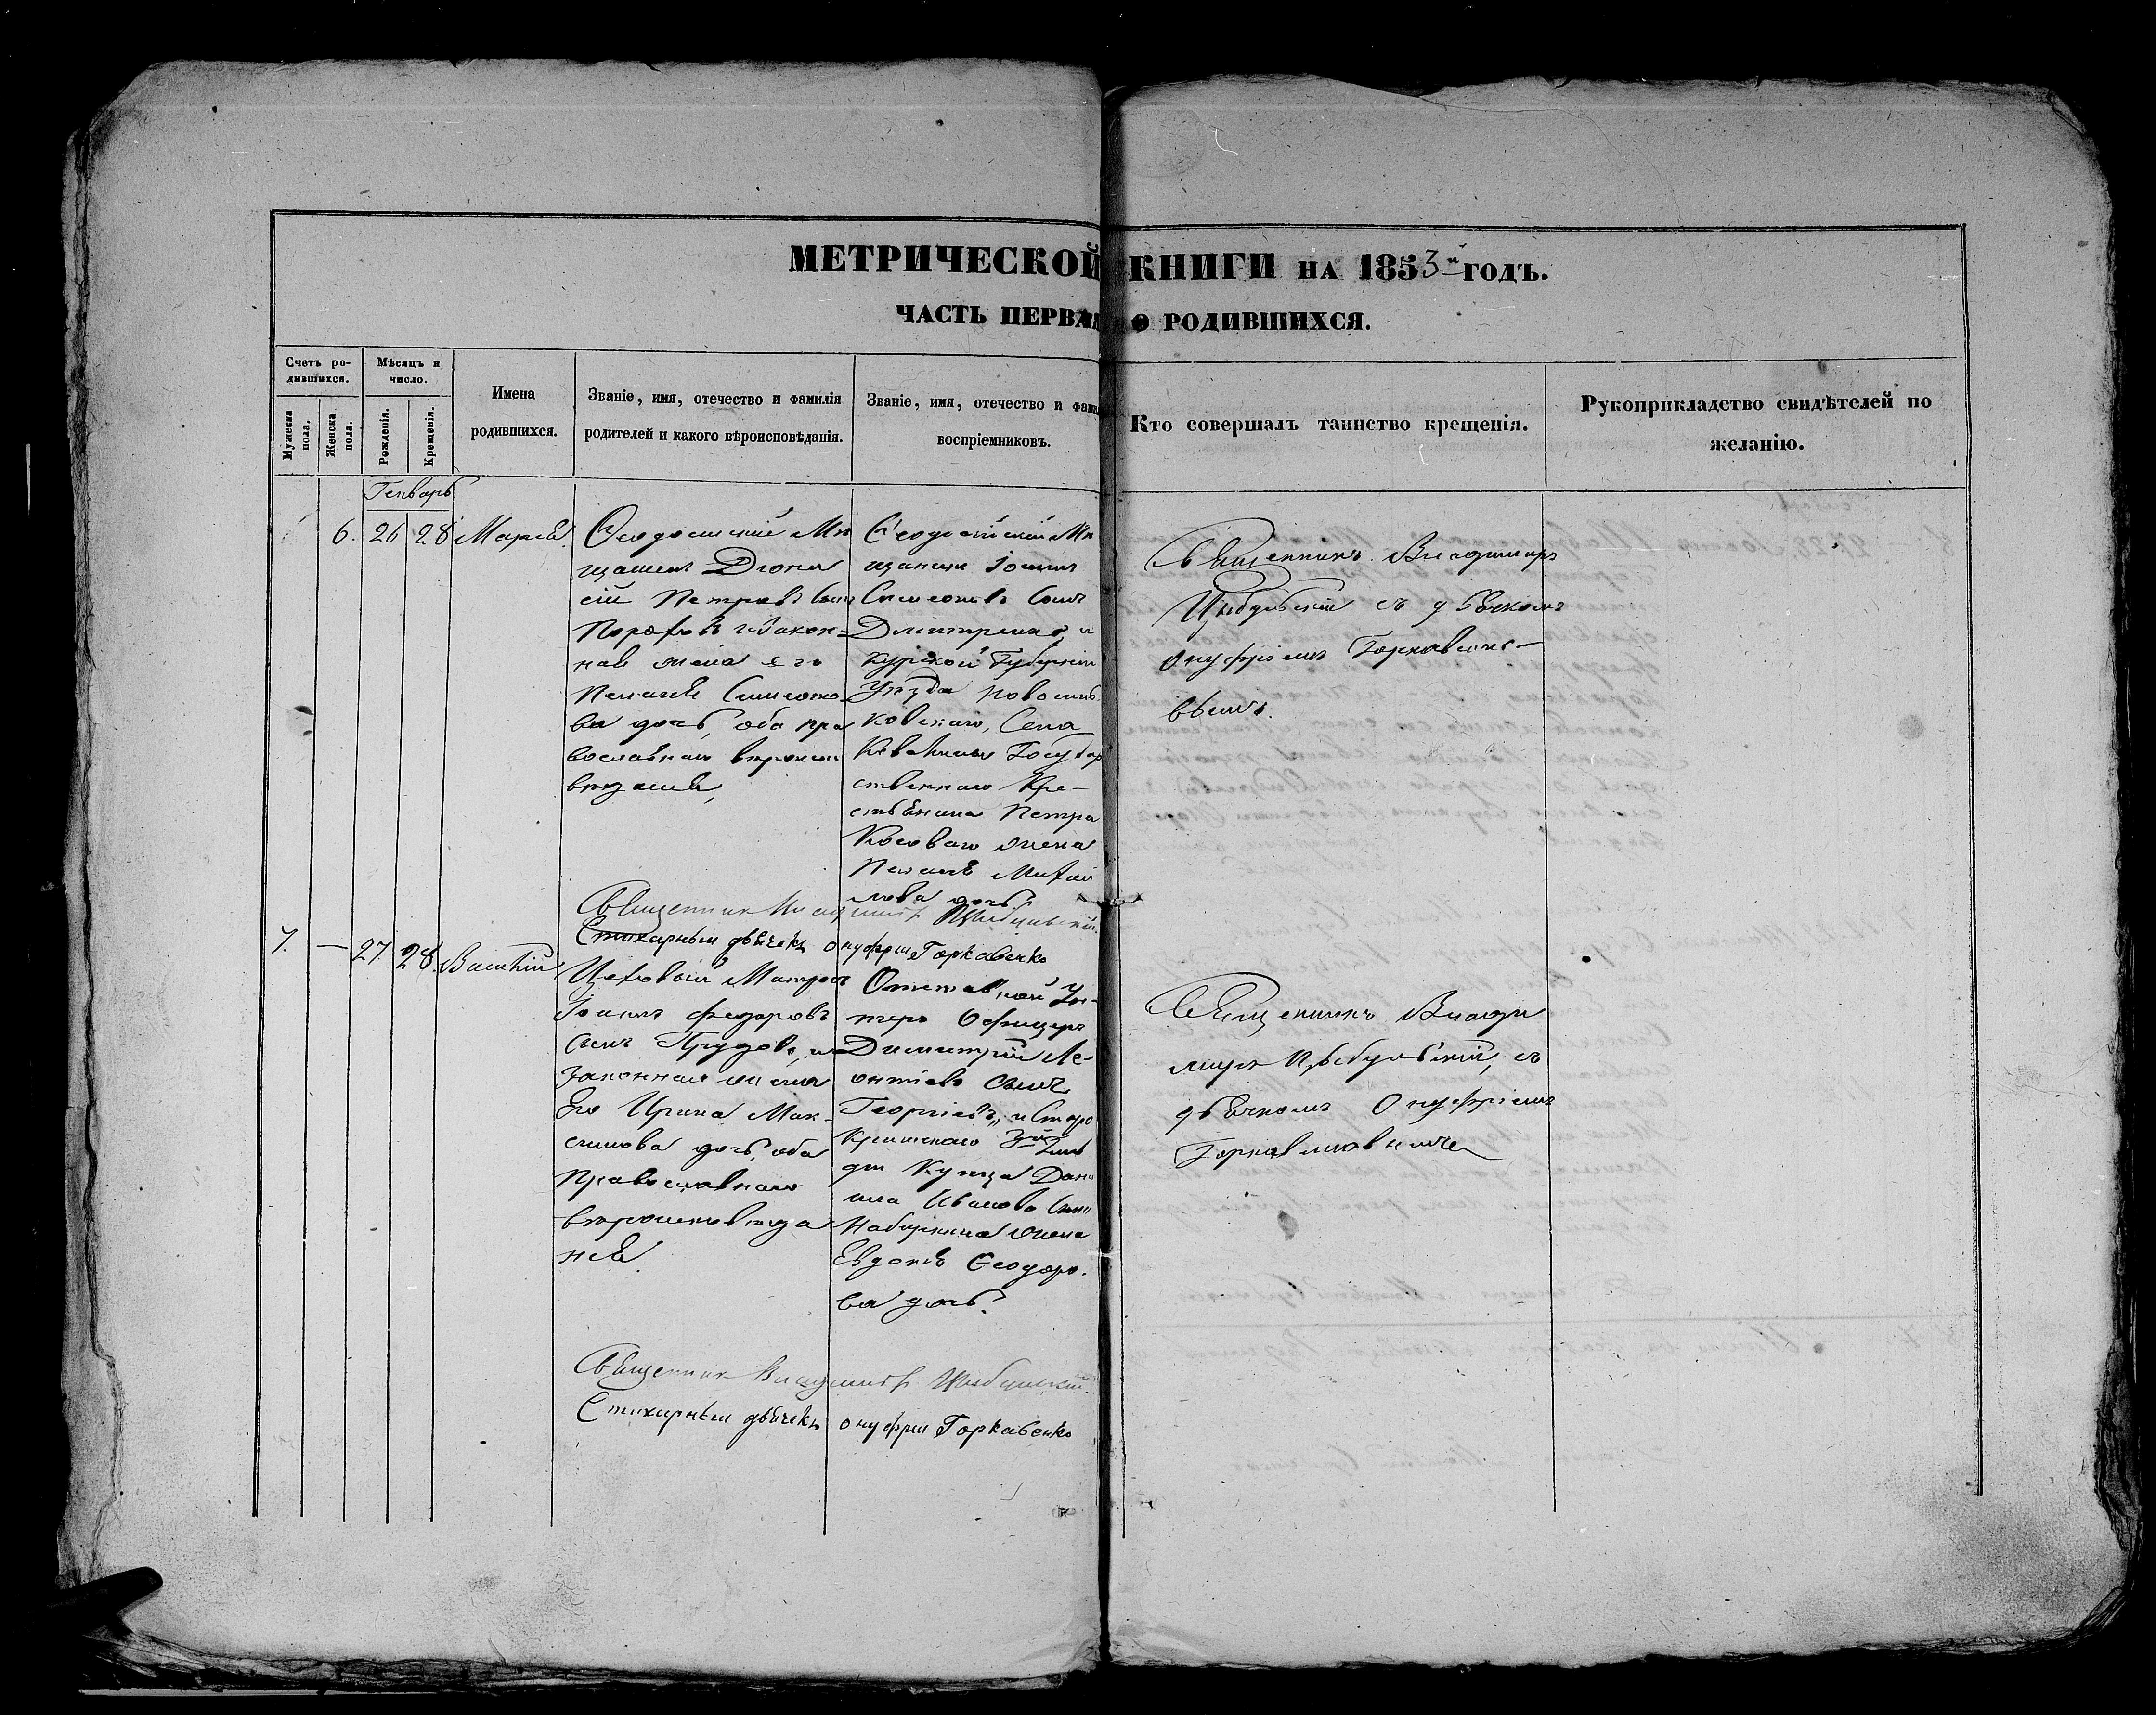 МЕТРИЧЕСКОЙ КНИГИ НА 1853й ГОДЪ.
ЧАСТЬ ПЕРВАЯ О РОДИВШИХСЯ.
Счетъ ро-
дившихся.
Мужеска
пола.
Женска
пола.
Мѣсяцъ и
число.
Рожденія.
Крещенія.
Имена
родившихся.
Званіе, имя, отечество и фамилія
родителей и какого вѣроисповѣданія.
Званіе, имя, отечество и фами
воспріемниковъ.
Кто совершалъ таинство крещенія.
Рукоприкладство свидѣтелей по
желанію.
Генварь
6. 26 28 Марія.
Ѳеодосійскій Мѣ
щанинъ Діони
сій Петровъ сынъ
и закон-
ная жена его
Пелагія Симеоно
ва дочь, оба пра
вославнаго вѣроиспо
вѣданія,
Ѳеодосійскій Мѣ
щанинъ
Симеоновъ сынъ
Дмитренко, и
Курской Губерніи
Уѣзда
Села
Государ
ственнаго Кре-
стьянина Петра
жена
Михай
лова дочь
Священникъ Владиміръ Цыбульскій
Священникъ Владиміръ
Цыбульскій съ дьячкомъ
Онуфріемъ Горкавенко-
вымъ.
Стихарный дьячекъ Онуфрій Горкавенко
7. — 27 28. Василій
Цеховый
Федоровъ
сынъ и
законная жена
его Ирина Мак-
симова дочь, оба
Православнаго
вѣроисповѣда
нія.
Отставной Ун-
теръ Офицеръ
Димитрій Ле-
онтіевъ сынъ
Георгіевъ, и Старо
Крымскаго 3й Гиль
діи Купца Дани
ила Иванова сына
жена
Евдокія Ѳеодоро-
ва дочь.
Священникъ Влади
миръ Цыбульскій, съ
дьячкомъ Онуфріемъ
Священникъ Владиміръ Цыбульскій.
Стихарный дьячекъ Онуфрій Горкавенко